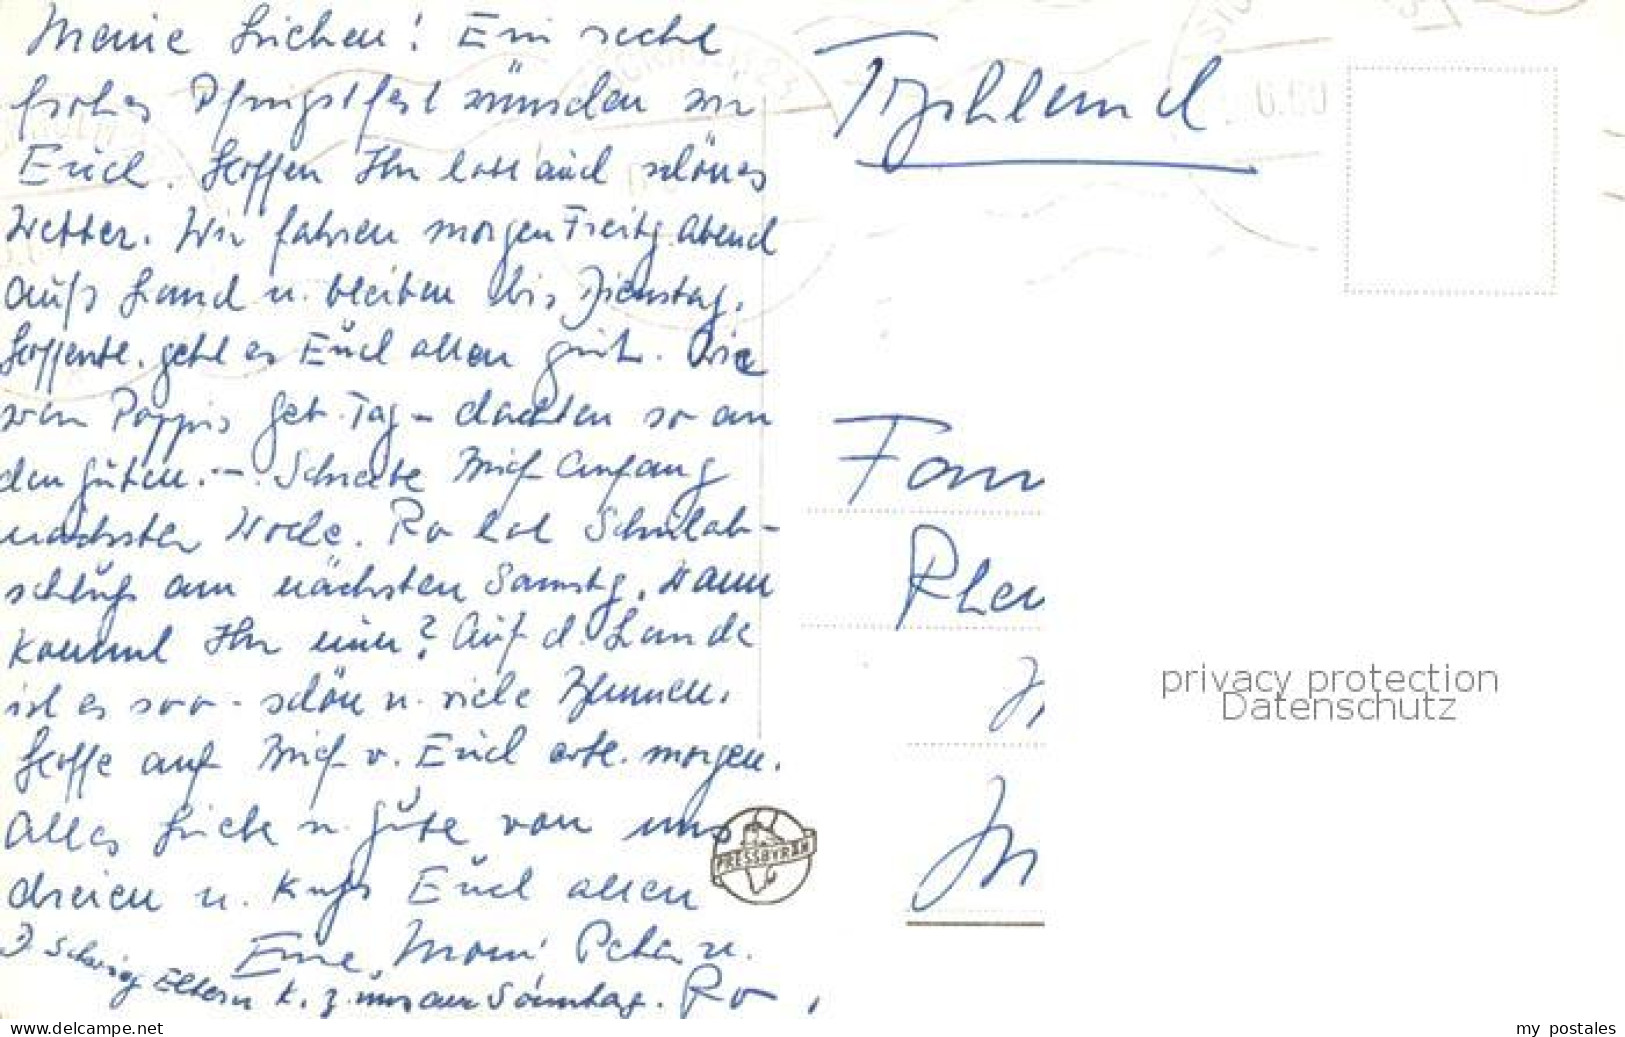 Meine Lieben! Ein recht
frohes Pfingstfest wünschen wir
Euch. Hoffen Ihr habt auch schönes
Wetter. Wir fahren morgen Freitg. Abend
aufs Land u. bleiben bis Dienstag.
Hoffentl. geht es Euch allen gut. Wie
war Pappis Geb. Tag - dachten so an
den Guten. - . Schreibe Brief Anfang
nächster Woche. Ro hat Schulab-
schluß am nächsten Samstg. Wann
kommt Ihr nun? Auf d. Lande
ist es soo - schön u. viele Blumen.
Hoffe auf Brief v. Euch evtl. morgen.
Alles Liebe u. Gute von uns
dreien u. Kuß Euch allen
Eure Momi Peter u.
Ro
D. Schwieg Eltern k. z. uns am Sonntag.
PRESSBYRÅN
Tyskland
Fam
privacy protection
Datenschutz
www.delcampe.net
my postales